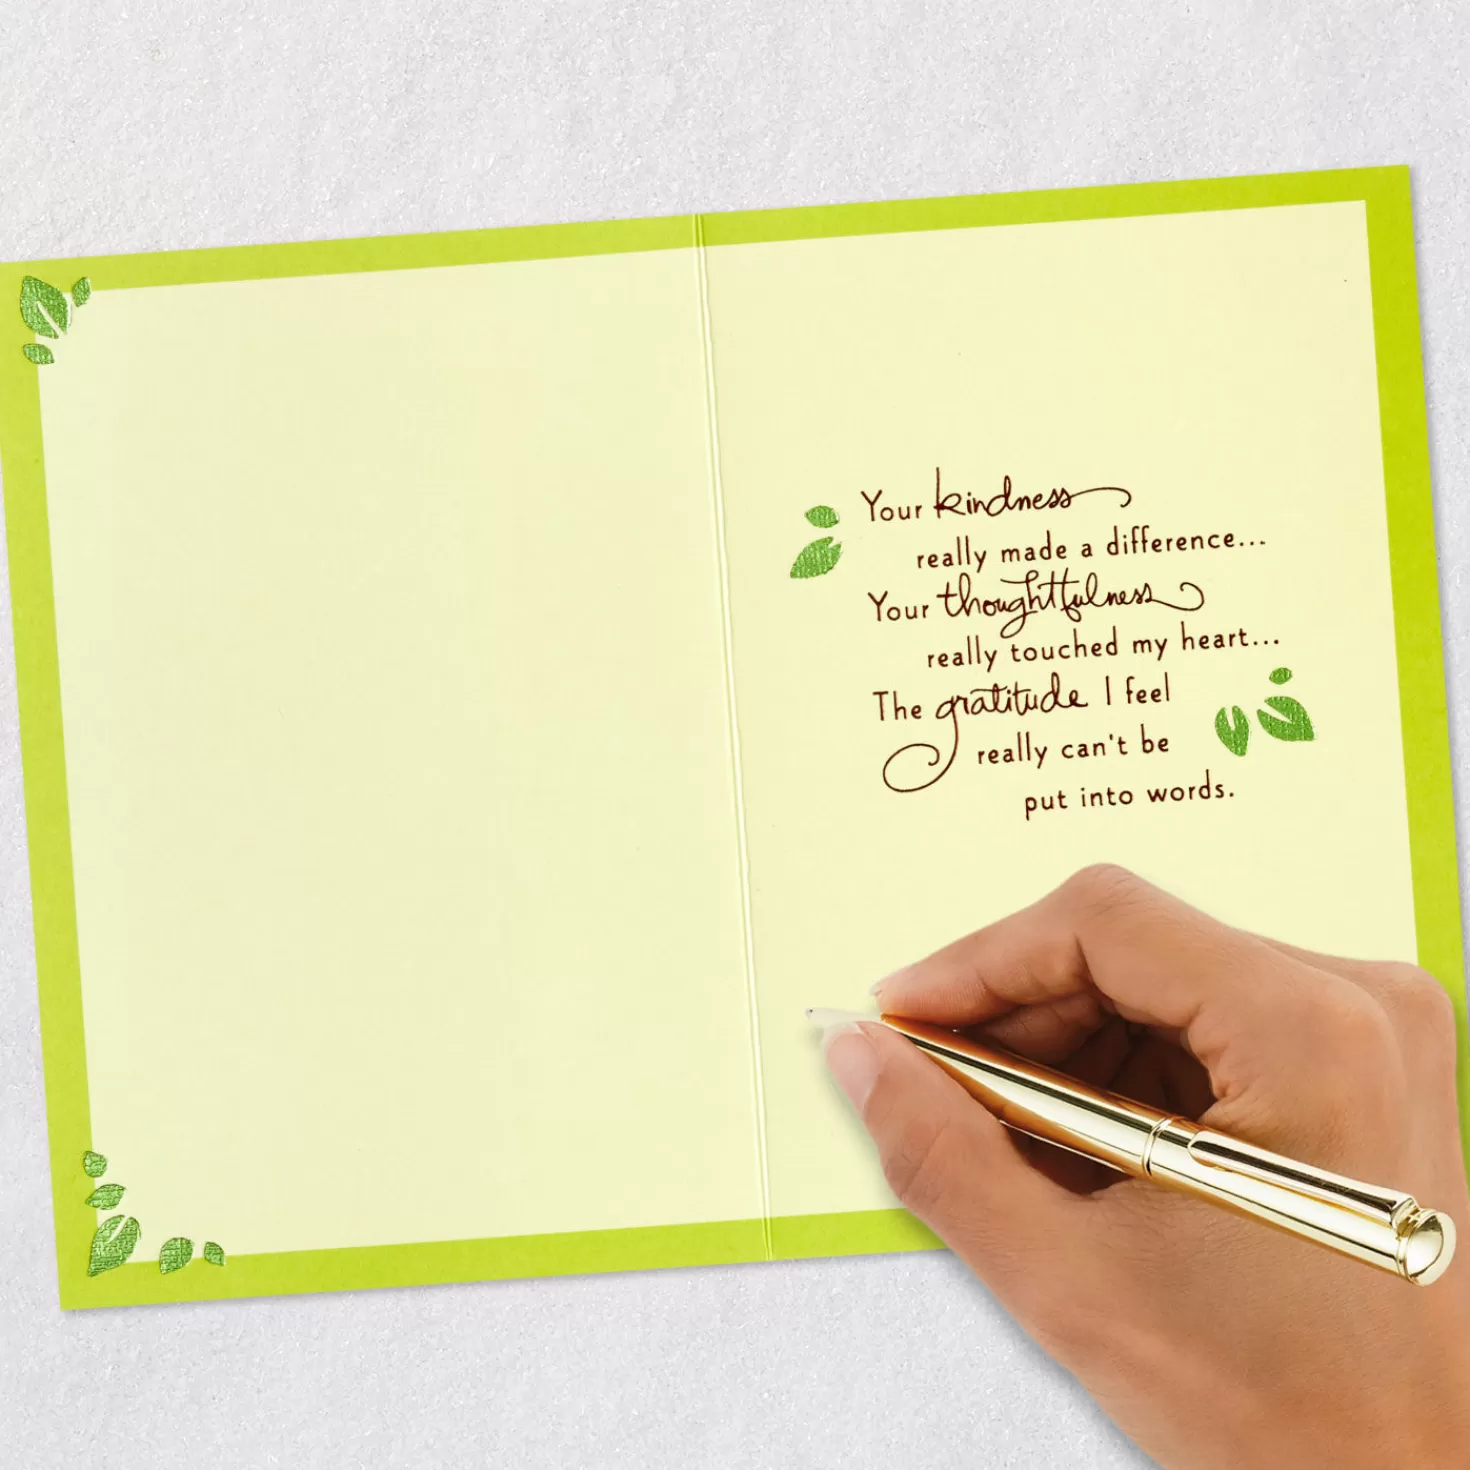 Your kindness
really made a difference...
Your thoughtfulness
really touched my heart...
The gratitude I feel
really can't be
put into words.